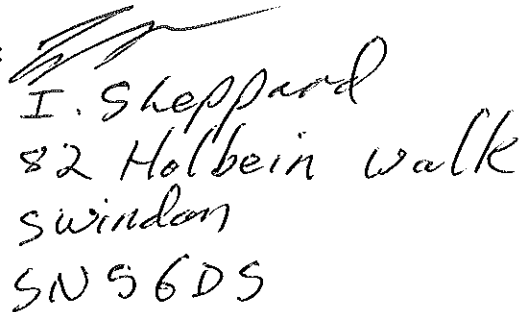 I. Sheppard
82 Holbein walk
Swindon
SN5 6DS